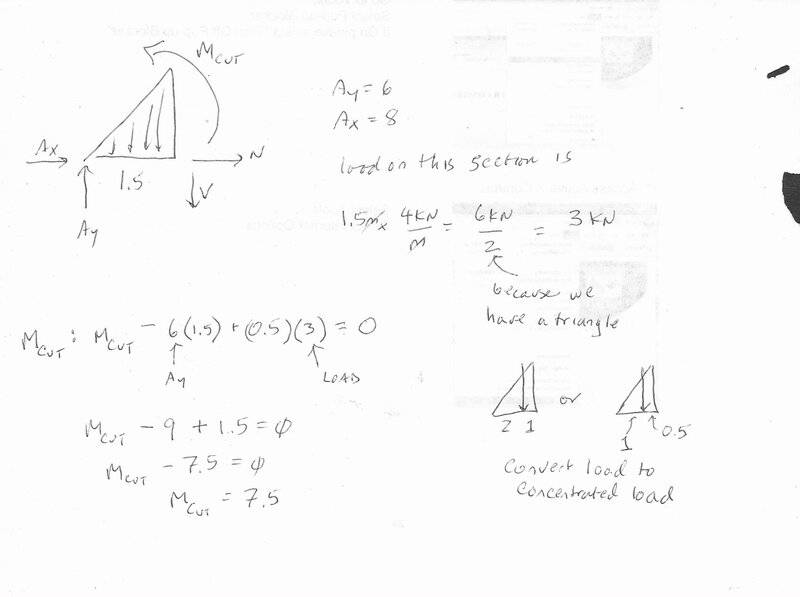 M_CUT
Ax
1.5
N
V
Ay
Ay = 6
Ax = 8
load on this section is
1.5m x 4KN/M = 6KN/2 = 3 KN
because we
have a triangle
M_CUT : M_CUT - 6(1.5) + (0.5)(3) = 0
Ay
LOAD
M_CUT - 9 + 1.5 = ϕ
M_CUT - 7.5 = ϕ
M_CUT = 7.5
2 1 or 1 0.5
Convert load to
concentrated load